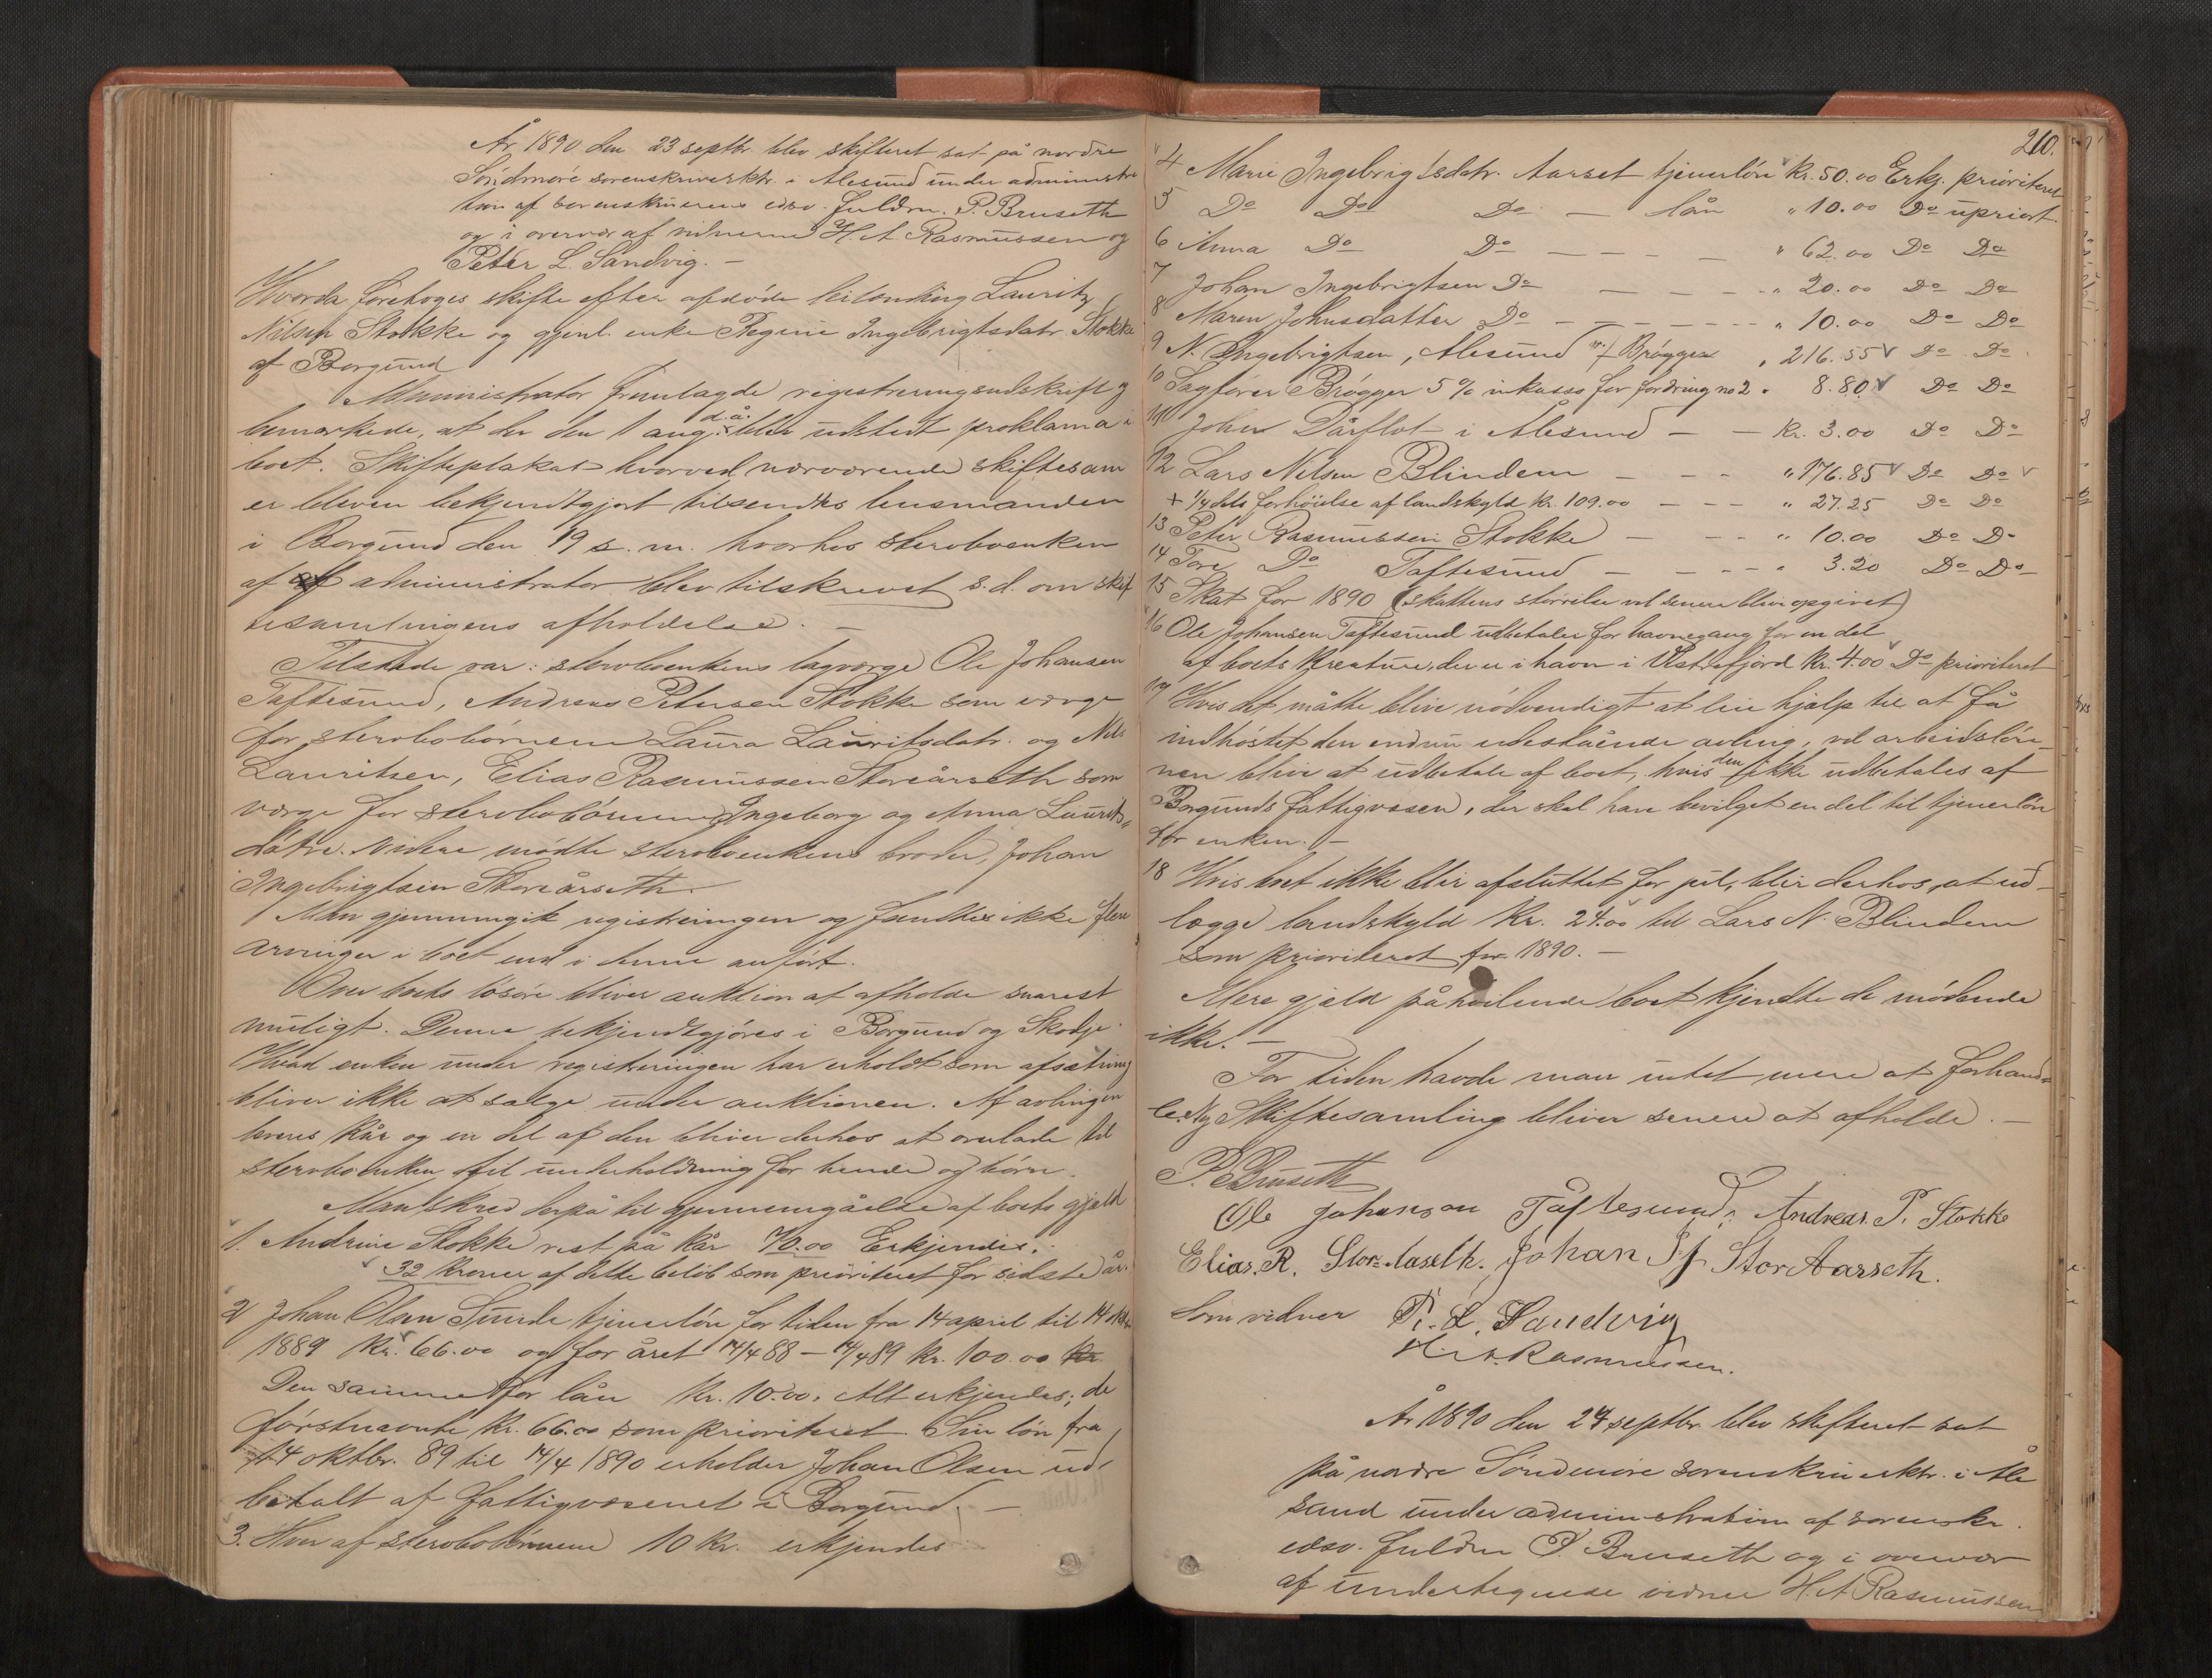 År 1890 den 23 septbr. blev skifteret sat på nordre
Söndmöre sorenskriverktr. i Alesund under administra
tion af sorenskriverens edsv. fuldm. P. Bruseth
og i overvær af vidnerne H. A. Rasmussen og
Peter L. Sandvig. —
Hvorda foretoges skifte efter afdöde leilending Lauritz
Nilsen Stokke og gjenl. enke Regine Ingebrigtsdatr. Stokke
af Borgund
Administrator fremlagde registreringsudskrift og
bemærkede, at der den 1 aug. d. å. blev udstedt proklama i
boet. Skifteplakat hvorved nærværende skiftesam
er bleven bekjendtgjort tilsendtes lensmanden
i Borgund den 19 s. m. hvorhos sterboenken
af administrator blev tilskrevet s. d. om skif
tesamlingens afholdelse. —
Tilstede var: sterboenkens lagværge Ole Johansen
Taftesund, Andreas Petersen Stokke som værge
for sterbobörnene Laura Lauritsdatr. og Nils
Lauritsen, Elias Rasmussen Storeårseth som
værge for sterbobörnene Ingeborg og Anna Laurits-
datre. Videre mödte sterboenkens broder, Johan
Ingebrigtsen Storeårseth.
Man gjennemgik registreringen og fandtes ikke flere
arvinger i boet end i denne anfört.
Over boets lösöre bliver auktion at afholde snarest
muligt. Denne bekjendtgjöres i Borgund og Skodje.
Hvad enken under registreringen har erholdt som afsætning
bliver ikke at sælge under auktionen. Af avlingen
leveres kår og en del af den bliver derhos at overlade til
sterboenken til underholdning for hende og börn.
Man skred derpå til gjennemgåelse af boets gjæld
1. Andrine Stokke rest på kår 70.00 Erkjendes.
32 kroner af dette belöb som prioriteret for sidste år.
2 Johan Olsen Sunde tjenerlön for tiden fra 14 april til 14 oktbr
1889 Kr. 66.00 og for året 14/4 88 — 14/4 89 Kr. 100.00
Den samme for lån Kr. 10.00. Alt erkjendes; de
förstnævnte Kr. 66.00 som prioriteret. Sin lön fra
14 oktbr. 89 til 14/4 1890 erholder Johan Olsen ud-
betalt af fattigvæsenet i Borgund. —
3. Hver af sterbobörnene 10 kr. erkjendes
210.
4 Marie Ingebrigtsdatr. Aarset tjenerlön Kr. 50.00 Erkj. prioriteret
5 Do Do Do — lån " 10.00 Do upriort.
6 Anna Do Do — — — — " 62.00 Do Do
7 Johan Ingebrigtsen Do — — — " 20.00 Do Do
8 Maren Johnsdatter Do — — — — " 10.00 Do Do
9 N. Ingebrigtsen, Alesund v./ Brögger " 216.55 Do Do
10 Sagförer Brögger 5 % inkasso for fordring no 2 " 8.80 Do Do
11 Johan Dårflot i Ålesund — — Kr. 3.00 Do Do
12 Lars Nilsen Blindem — — — " 176.85 Do Do
+ 1/4 dels forhöielse af landskyld Kr. 109.00 — — — " 27.25 Do Do
13 Peter Rasmussen Stokke — — — " 10.00 Do Do
14 Tore Do Taftesund — — — — " 3.20 Do Do
15 Skat for 1890 (skattens störrelse vil senere blive opgivet)
16 Ole Johansen Taftesund udbetaler for havnegang for en del
af boets kreature, der er i havn i Vestrefjord Kr. 4.00 Do prioriteret
17 Hvis det måtte blive nödvendigt at leie hjælp til at få
indhöstet den endnu udestående avling, vil arbeidslön-
nen blive at udbetale af boet, hvis den ikke udbetales af
Borgunds fattigvæsen, der skal have bevilget en del til tjenerlön
for enken. —
18 Hvis boet ikke blir afsluttet for jul, blir derhos at ud-
lægge landskyld Kr. 24.00 til Lars N. Blindem
som prioriteret for 1890. —
Mere gjæld påhvilende boet kjendte de mödende
ikke. —
For tiden havde man intet mere at forhand-
le. Ny Skiftesamling bliver senere at afholde. —
P. Bruseth
Ole Johanson Taftesund, Andreas. P. Stokke
Elias. R. Stor-Aaseth. Johan I J Stor Aarseth.
Som vidner P. L. Sandvig
H. A. Rasmussen.
År 1890 den 24 septbr. blev skifteret sat
på nordre Söndmöre sorenskriverktr. i Åle
sund under administration af sorenskr.
edsv. fuldm P. Bruseth og i overvær
af undertegnede vidner H. A Rasmussen